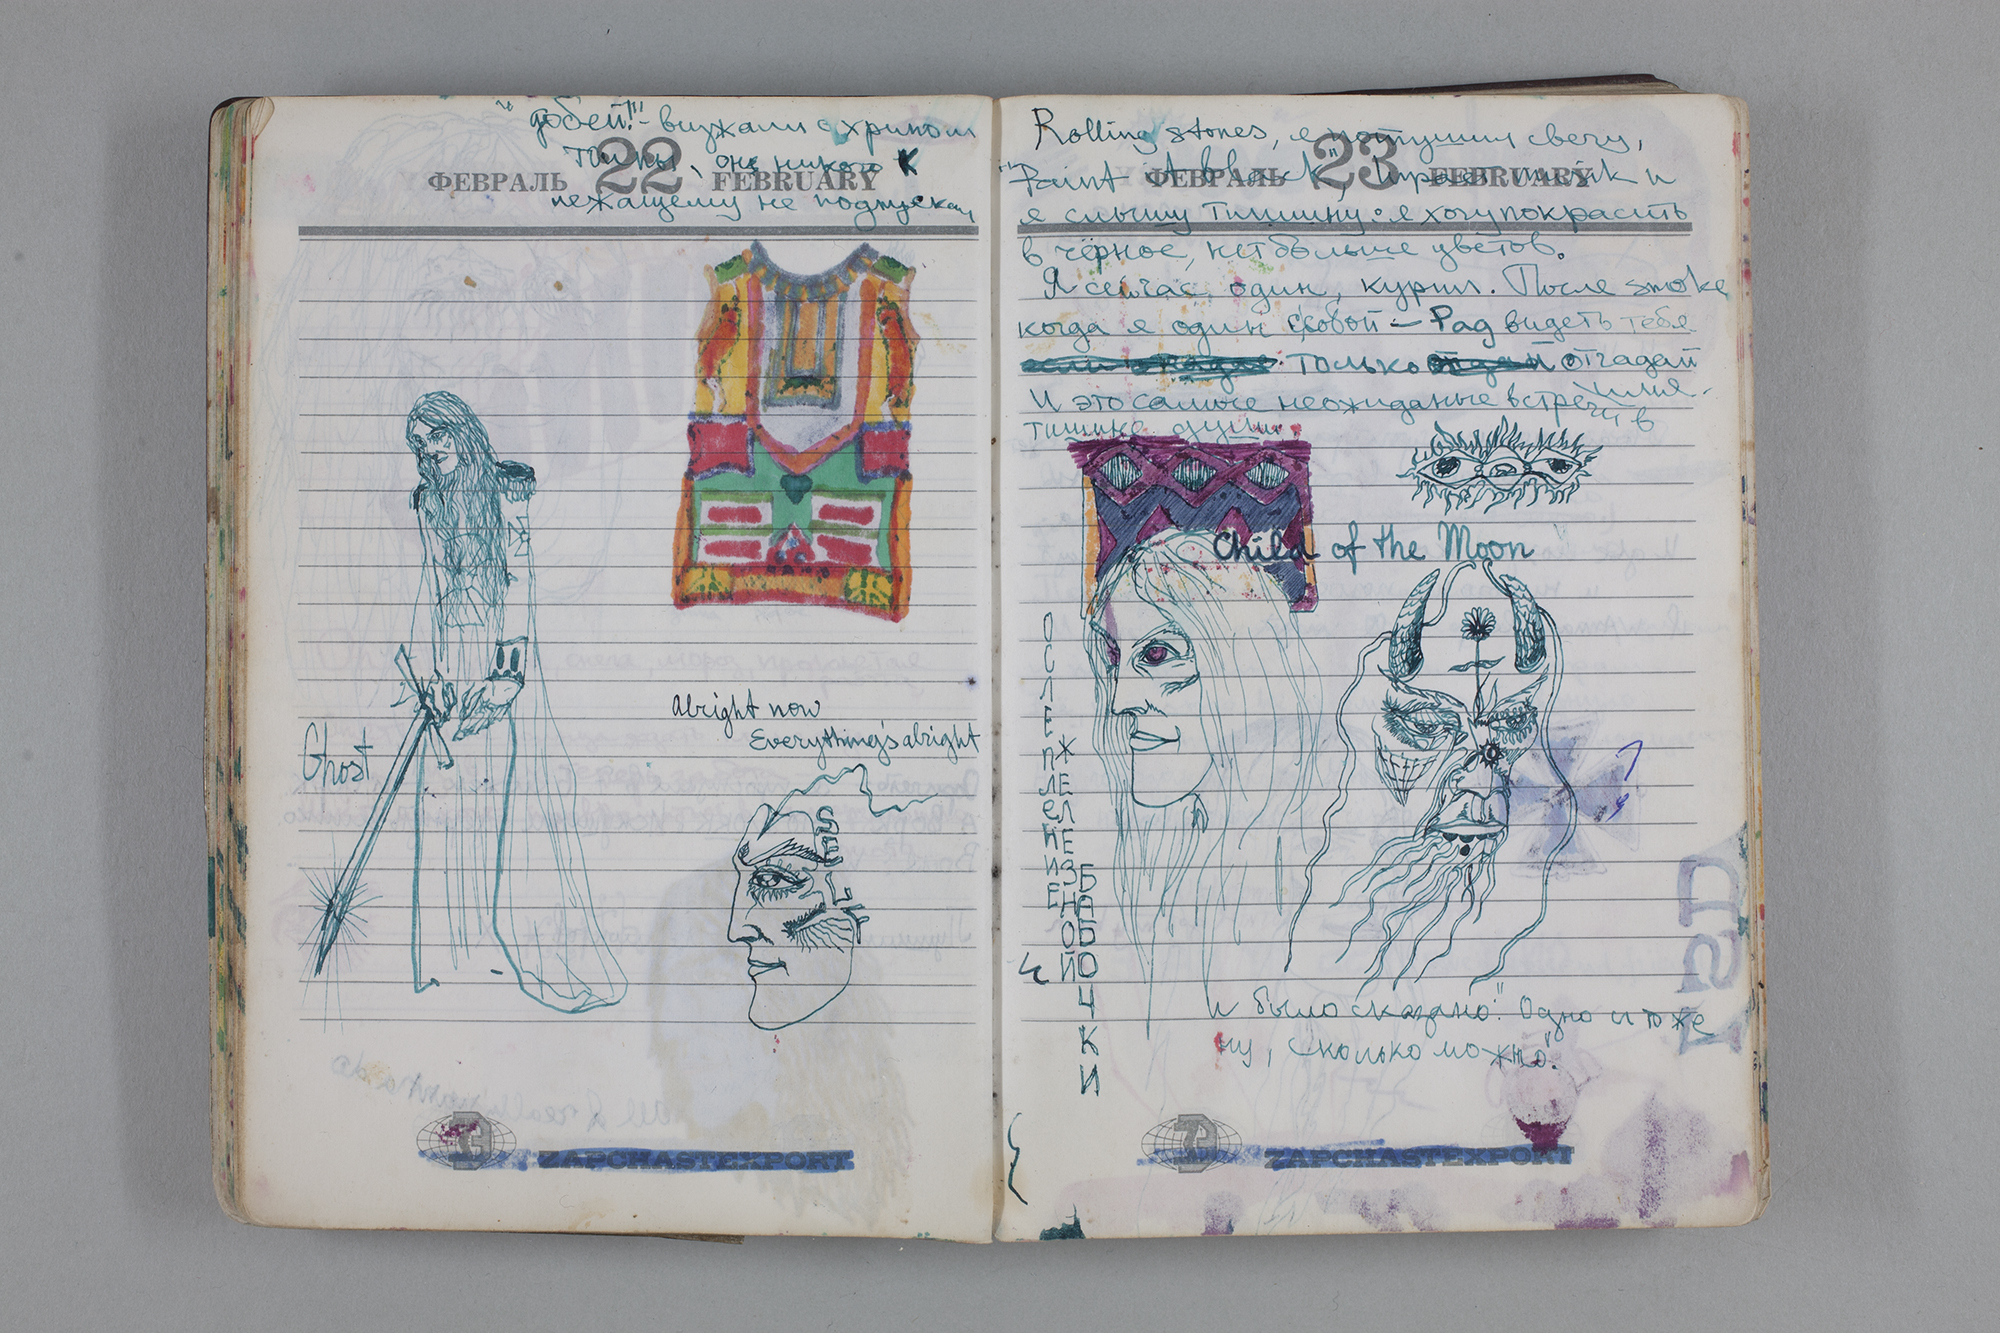 "добей!" - визжали с хрипом
они никого к
лежащему не подпускал
ФЕВРАЛЬ 22 FEBRUARY
Ghost
Alright now
Everything's alright
SELF
ZAPCHASTEXPORT
Rolling stones, я потушил свечу,
ФЕВРАЛЬ 23 FEBRUARY
"Paint it black", играет и
я слышу тишину: я хочу покрасить
в чёрное, нет больше цветов.
Я сейчас один, курил. После smoke
когда я один с собой - Рад видеть тебя
только отгадай
И это самые неожиданые встречи в
тишине души
Child of the Moon
ОСЛЕПЛЕНИЕ
ЖЕЛЕЗНОЙ
БАБОЧКИ
и было сказано: "Одно и то же
ну, сколько можно".
ZAPCHASTEXPORT